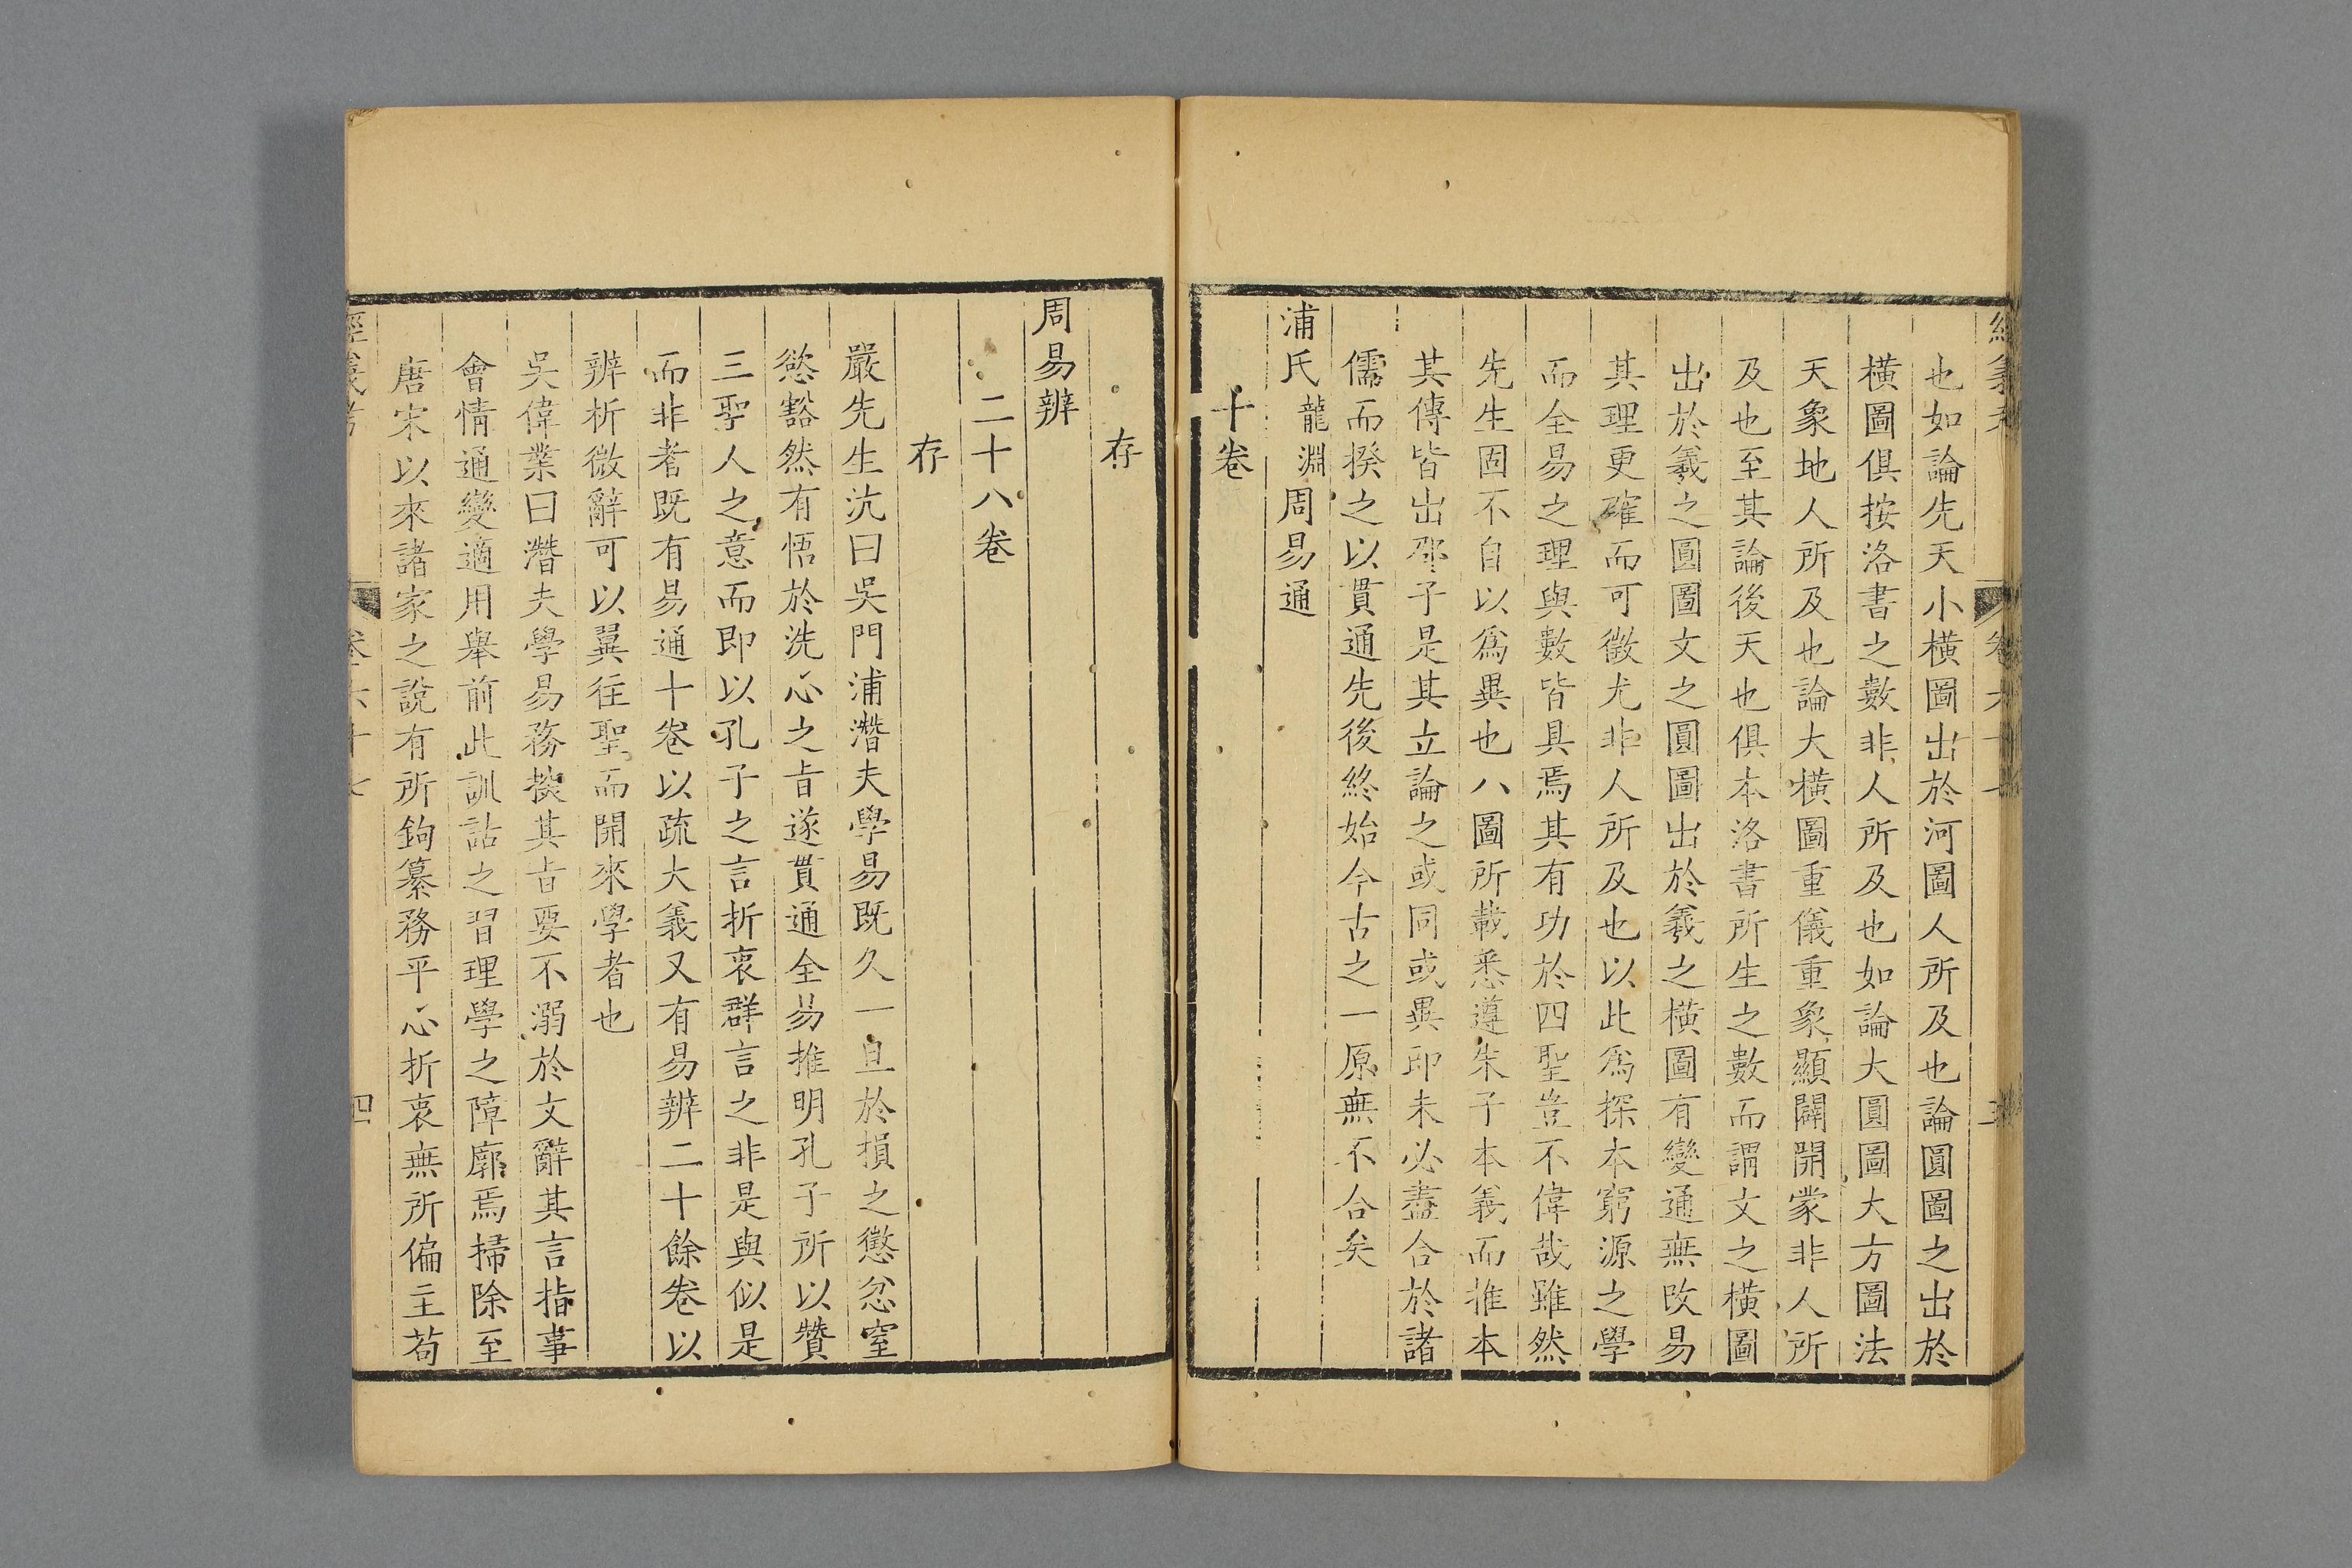 也如論先天小橫圖出於河圖人所及也論圓圖之出於
橫圖俱按洛書之數非人所及也如論大圓圖大方圖法
天象地人所及也論大橫圖重儀重象顯闢開蒙非人所
及也至其論後天也俱本洛書所生之數而謂文之橫圖
出於羲之圓圖文之圓圖出於羲之橫圖有變通無改易
其理更確而可徵尤非人所及也以此爲探本窮源之學
而全易之理與數皆具焉其有功於四聖豈不偉哉雖然
先生固不自以爲異也八圖所載悉遵朱子本義而推本
其傳皆出邵子是其立論之或同或異卽未必盡合於諸
儒而揆之以貫通先後終始今古之一原無不合矣
浦氏龍淵周易通
十卷
存
周易辨
二十八卷
存
嚴先生沆曰吳門浦潛夫學易既久一旦於損之懲忿窒
慾豁然有悟於洗心之旨遂貫通全易推明孔子所以贊
三聖人之意而即以孔子之言折衷群言之非是與似是
而非者既有易通十卷以疏大義又有易辨二十餘卷以
辨析微辭可以翼往聖而開來學者也
吳偉業曰潛夫學易務挨其旨要不溺於文辭其言指事
會情通變適用舉前此訓詁之習理學之障廓焉掃除至
唐宋以來諸家之說有所鉤纂務平心折衷無所偏主苟
經義考
卷六十七
四